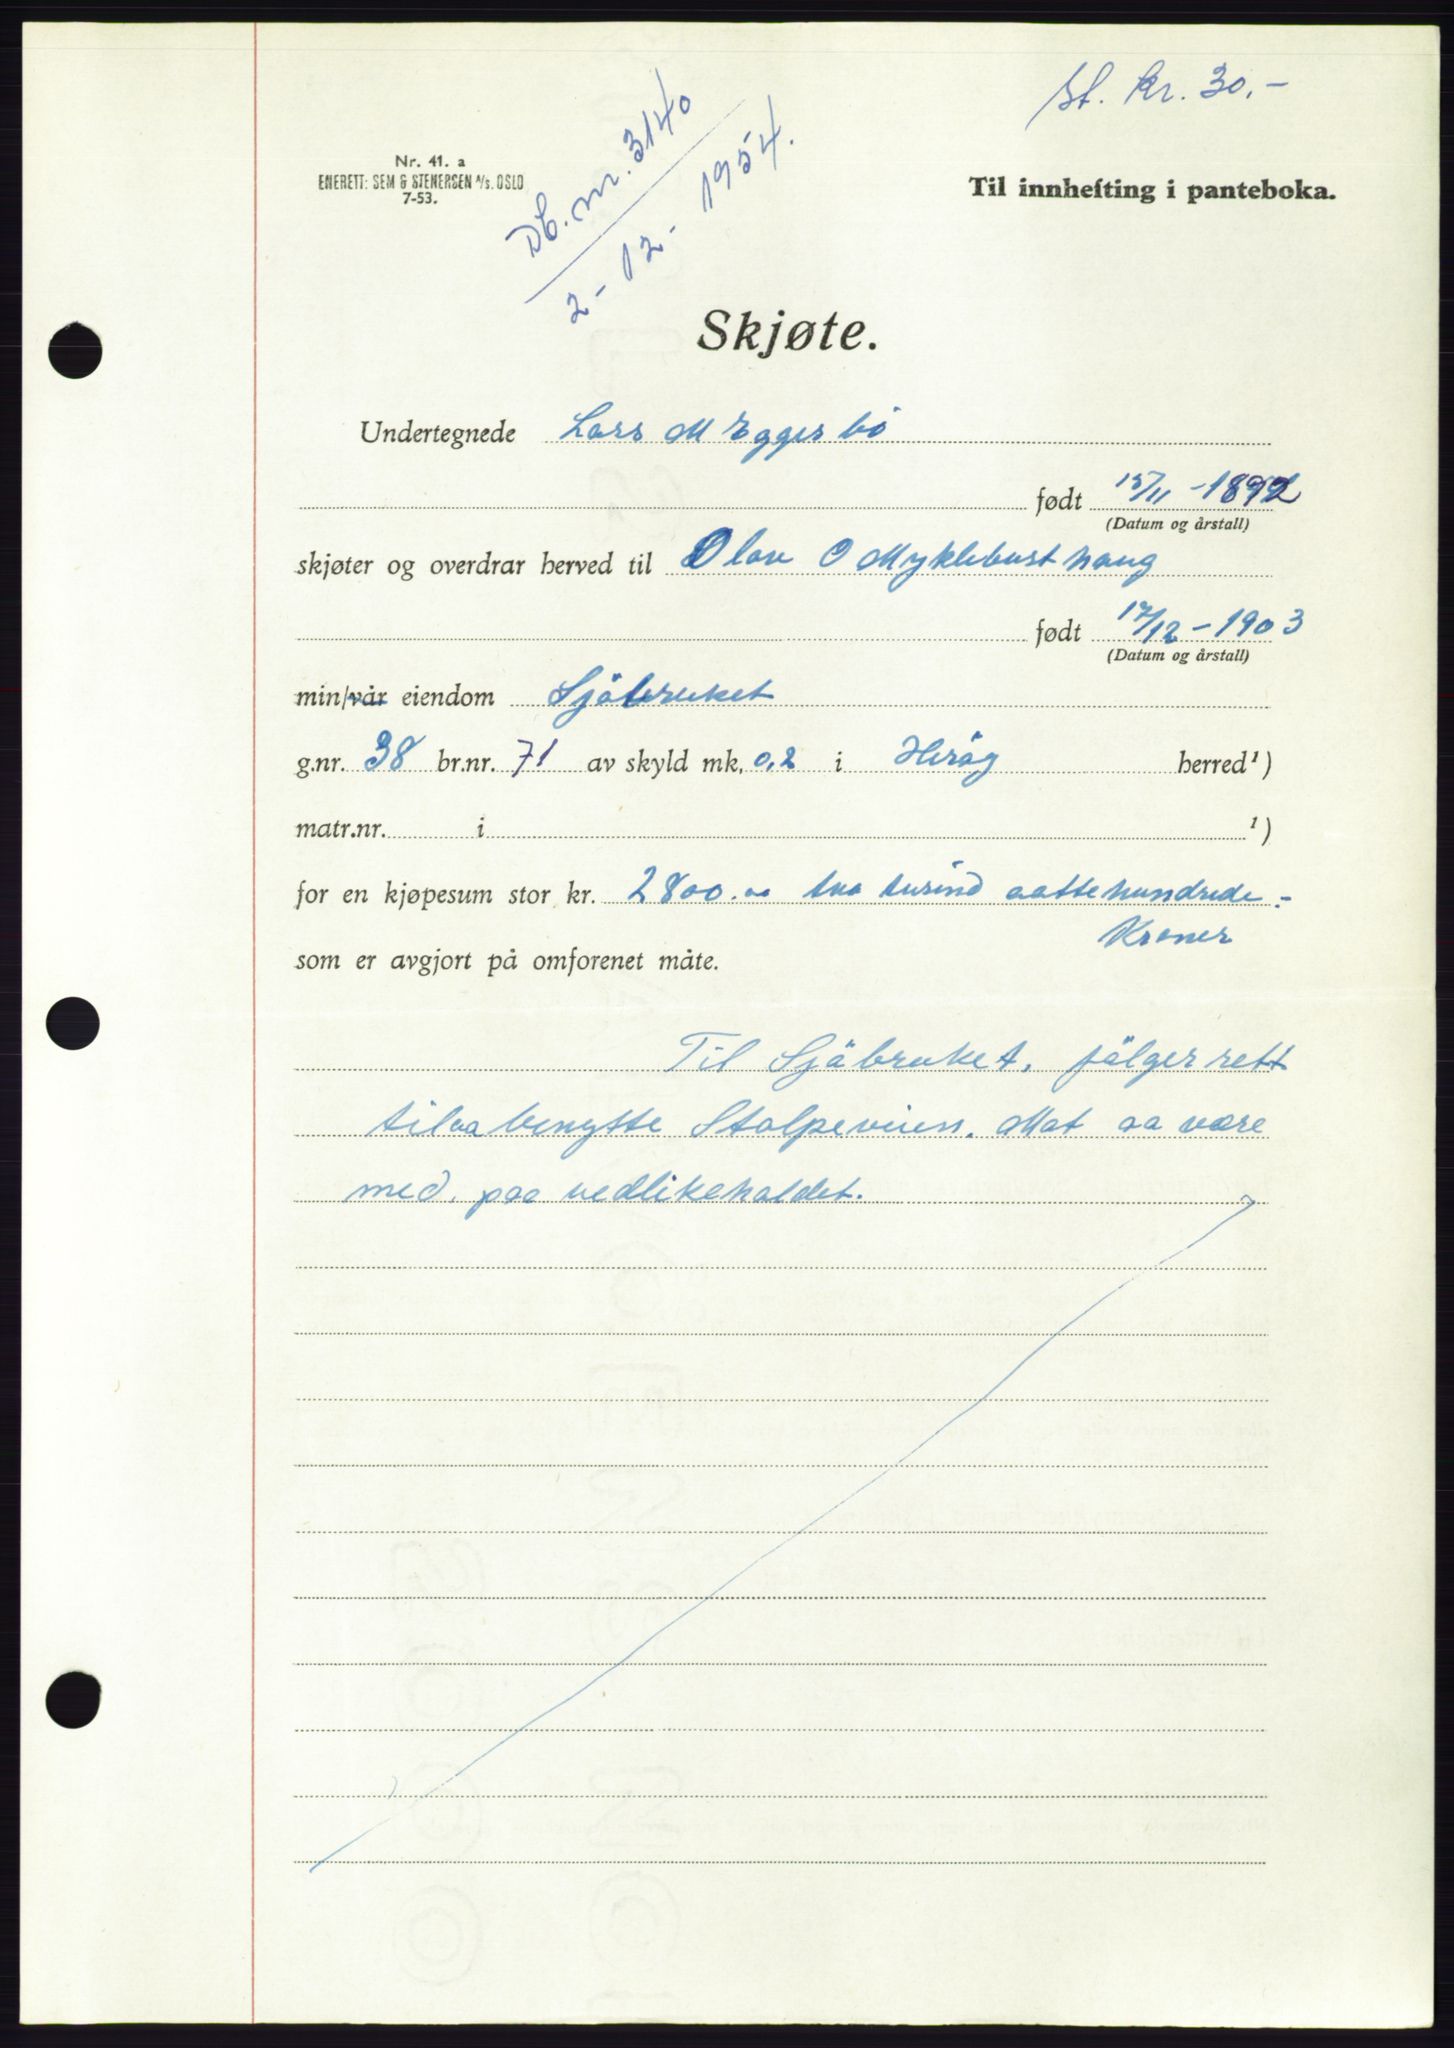 St. kr. 30.-
Db. nr. 3140
2-12-1954.
Nr. 41. a
ENERETT: SEM & STENERSEN A/S. OSLO
7-53.
Til innhefting i panteboka.
Skjøte.
Undertegnede Lars M Eggesbö
født 15/11 - 1892
(Datum og årstall)
skjøter og overdrar herved til Olav O Myklebusthaug
født 17/12 - 1903
(Datum og årstall)
min/vår eiendom Sjöbruket
g.nr. 38 br.nr. 71 av skyld mk. 0,2 i Heröy herred¹)
matr.nr. i ¹)
for en kjøpesum stor kr. 2800.00 tva tusind aattehundrede.-
Kroner
som er avgjort på omforenet måte.
Til Sjöbruket, fölger rett
til aa benytte Stolpeveien. Mot aa være
med, paa vedlikeholdet.